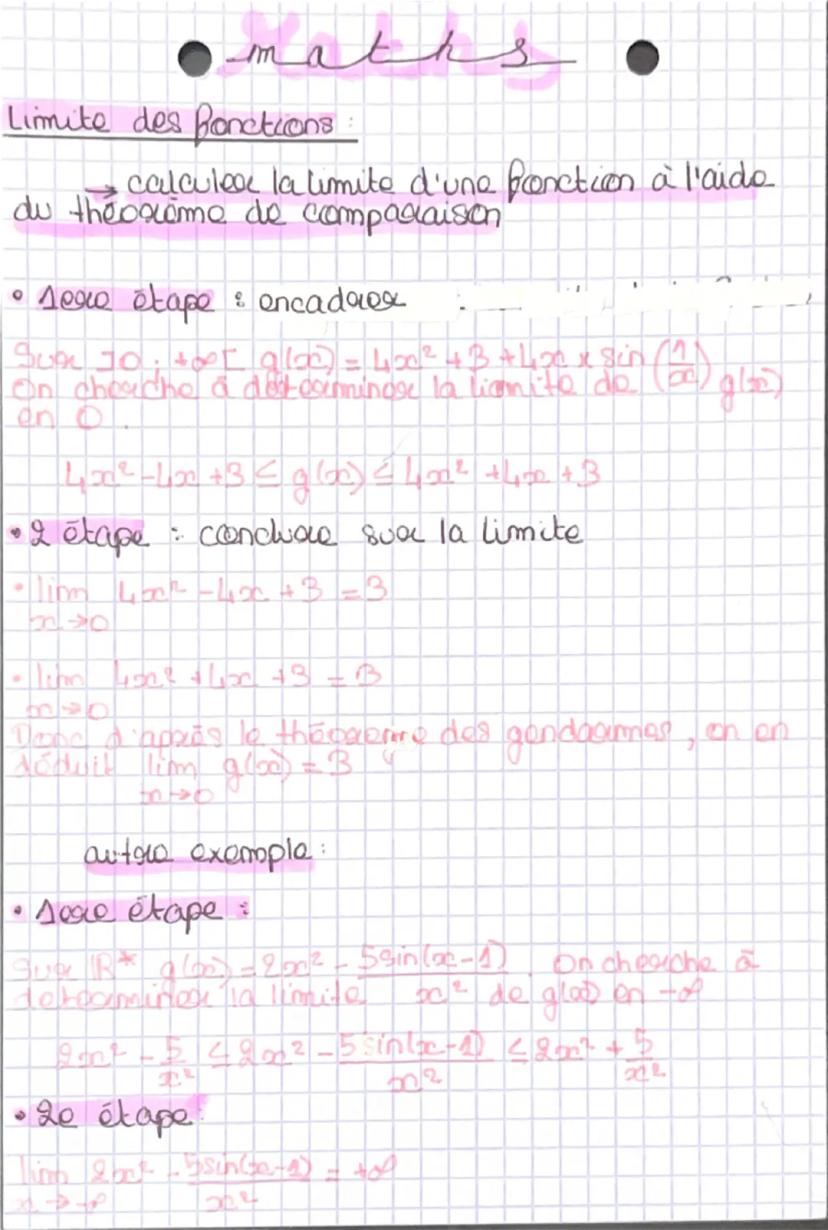 maths
Limite des fonctions :
→ calculer la limite d'une fonction à l'aide
du théorème de comparaison
• 1ere étape : encadrer :
Sur ]0 ; +∞[ g(x) = 4x² + 3 + 4x × sin (1/x)
On cherche à déterminer la limite de g(x)
en 0.
4x² - 4x + 3 ≤ g(x) ≤ 4x² + 4x + 3
• 2 étape : conclure sur la limite
• lim 4x² - 4x + 3 = 3
x → 0
• lim 4x² + 4x + 3 = 3
x → 0
Donc d'après le théoreme des gendarmes, on en
déduit lim g(x) = 3
x → 0
autre exemple :
• 1ere étape :
Sur ℝ* g(x) = 2x² - 5sin(x-1)/x² On cherche à
determiner la limite de g(x) en -∞
2x² - 5/x² ≤ 2x² - 5sin(x-1)/x² ≤ 2x² + 5/x²
• 2e étape :
lim 2x² - 5sin(x-1)/x² = +∞
x → -∞